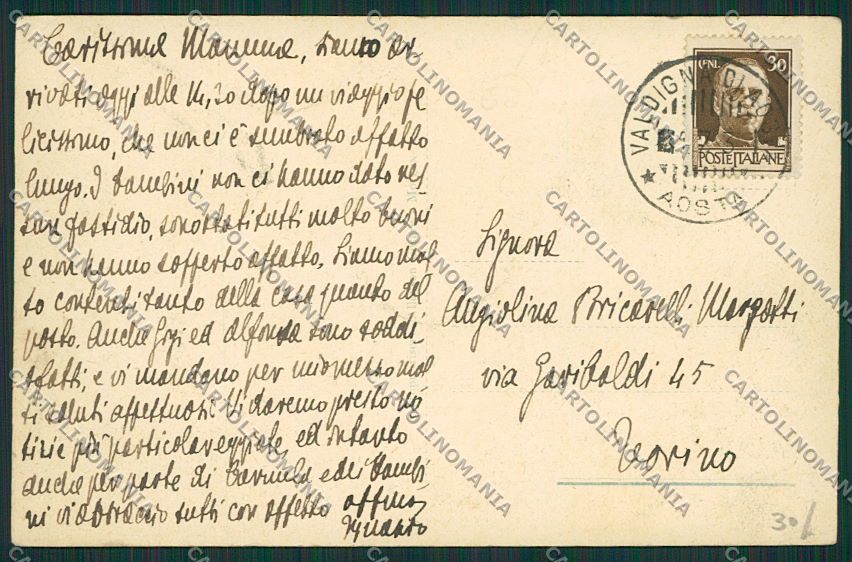 Carissima Mamma, siamo ar
rivati oggi alle 14,20 dopo un viaggio fe
licissimo, che non ci è sembrato affatto
lungo. I bambini non ci hanno dato nes
sun fastidio, sono stati tutti molto buoni
e non hanno sofferto affatto. Siamo mol
to contenti tanto della casa quanto del
posto. Anche ed Alfonsa sono soddi
sfatti, e vi mandano per mio mezzo mol
ti saluti affettuosi. Vi daremo presto no
tizie più particolareggiate, ed intanto
anche per parte di ed i bambi
ni vi abbraccio tutti con affetto affmo
CENT. 30
POSTE ITALIANE
VALDIGNA D'
AOSTA
Signora
Angiolina Bricarelli Margotti
via Garibaldi 45
Torino
30/
CARTOLINOMANIA